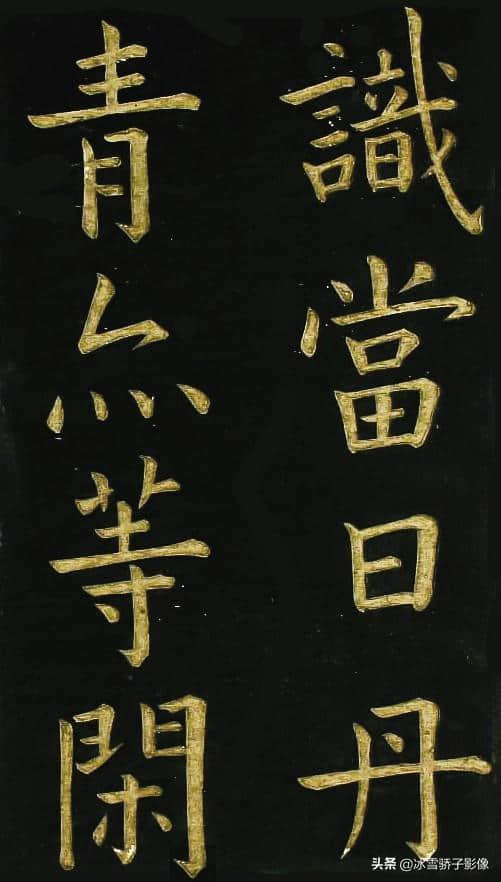 識當日丹
青亦等閑
头条 @冰雪骄子影像